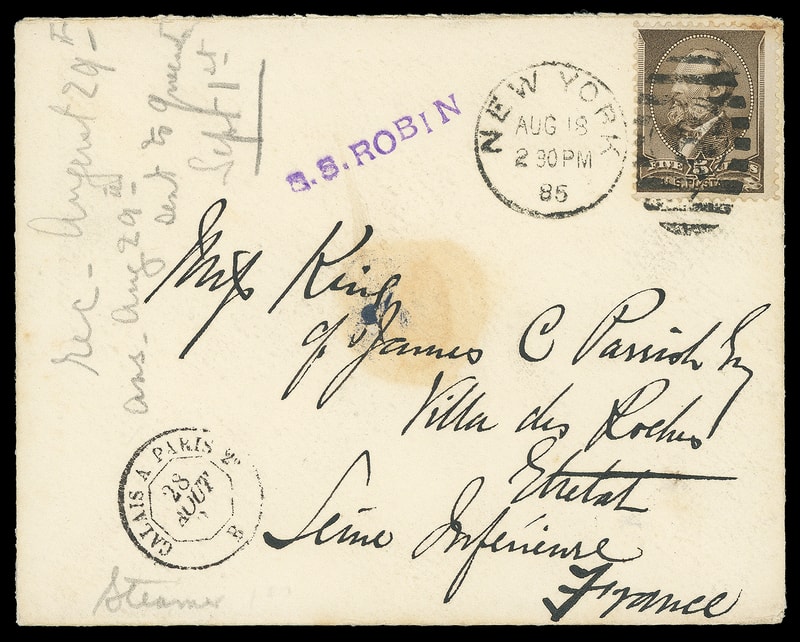 rec - August 29th
ans - Aug 29 -
sent to
Sept 1st
S.S. ROBIN
NEW YORK
AUG 18
2 30 PM
85
FIVE 5 CENTS
Miss King
c/o James C Parrish Esq
Villa des Roches
Etretat
Seine Inférieure
France
CALAIS A PARIS 2º
28
AOUT
B
Steamer